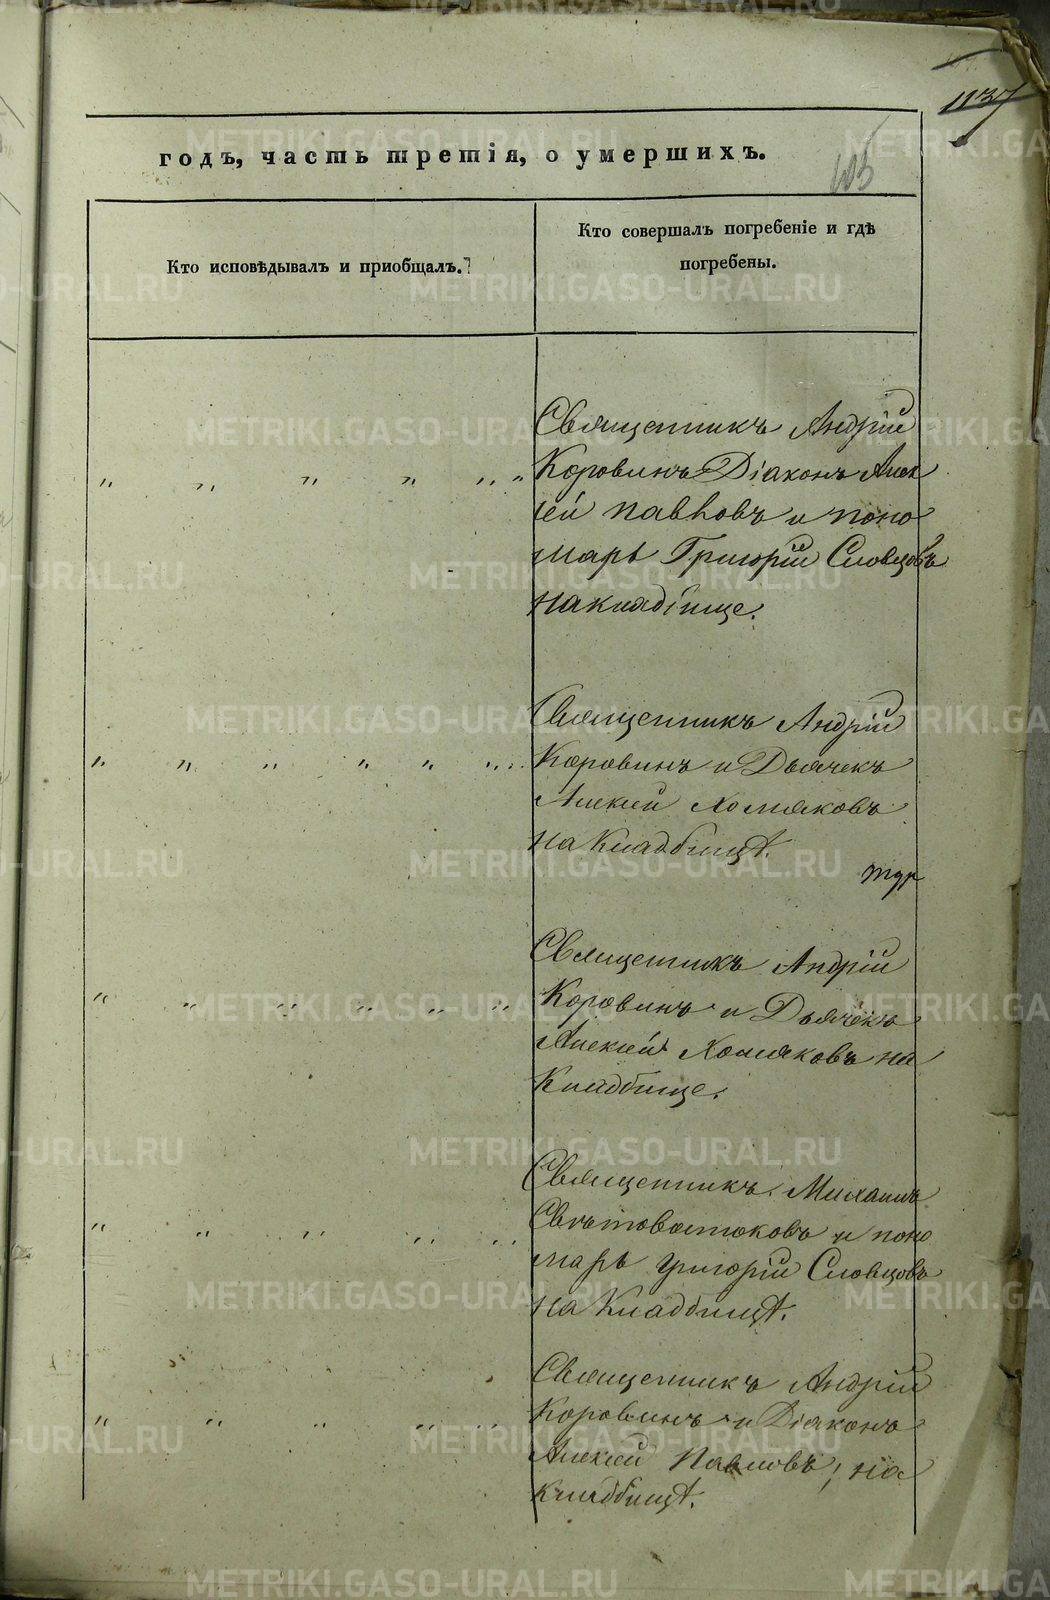 1137
годъ, часть третія, о умершихъ.
103
Кто исповѣдывалъ и приобщалъ.
Кто совершалъ погребеніе и гдѣ
погребены.
Священникъ Андрій
Коровинъ Діаконъ Алек
сѣй Павловъ и поно
марь Григорій Словцовъ
на кладбище.
Священникъ Андрій
Коровинъ и Дьячекъ
Алексій Хомяковъ
на Кладбищѣ.
Священникъ Андрій
Коровинъ и Дьячекъ
Алексій Хомяковъ на
Кладбище.
Священникъ Михаилъ
Свѣтовостоковъ и поно
марь Григорій Словцовъ
на Кладбищѣ.
Священникъ Андрій
Коровинъ и Діаконъ
Алексій Павловъ, на
кладбищѣ.
METRIKI.GASO-URAL.RU